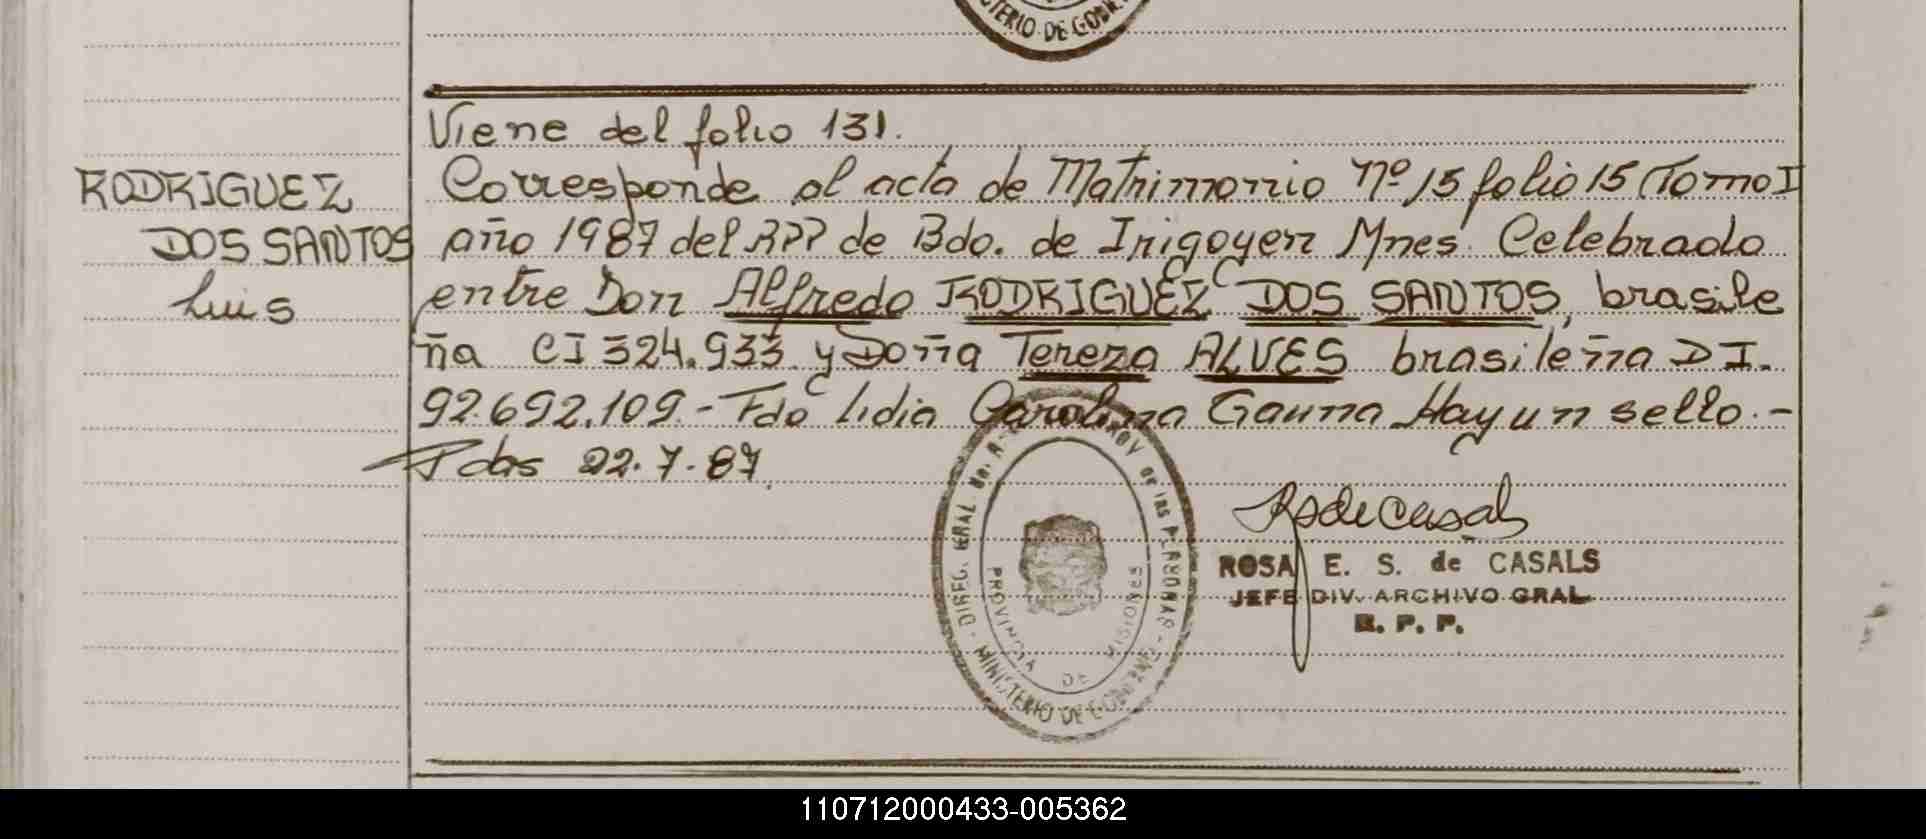 MINISTERIO DE GOBIE
Viene del folio 131.
RODRIGUEZ Corresponde al acta de Matrimonio Nº 15 folio 15 Tomo I
DOS SANTOS año 1987 del RPP de Bdo. de Irigoyen Mnes. Celebrado
Luis entre Don Alfredo RODRIGUEZ DOS SANTOS, brasile
ña CI 324.933 y Doña Tereza ALVES brasileña D I.
92.692.109.- Fdo Lidia Carolina Gauna Hayun sello.-
Pdas 22.7.87.
DIREC. GRAL. PROV de las PERSONAS - MINISTERIO DE GOBIERNO -
PROVINCIA DE MISIONES
RSdeCasals
ROSA E. S. de CASALS
JEFE DIV. ARCHIVO GRAL
R. P. P.
110712000433-005362